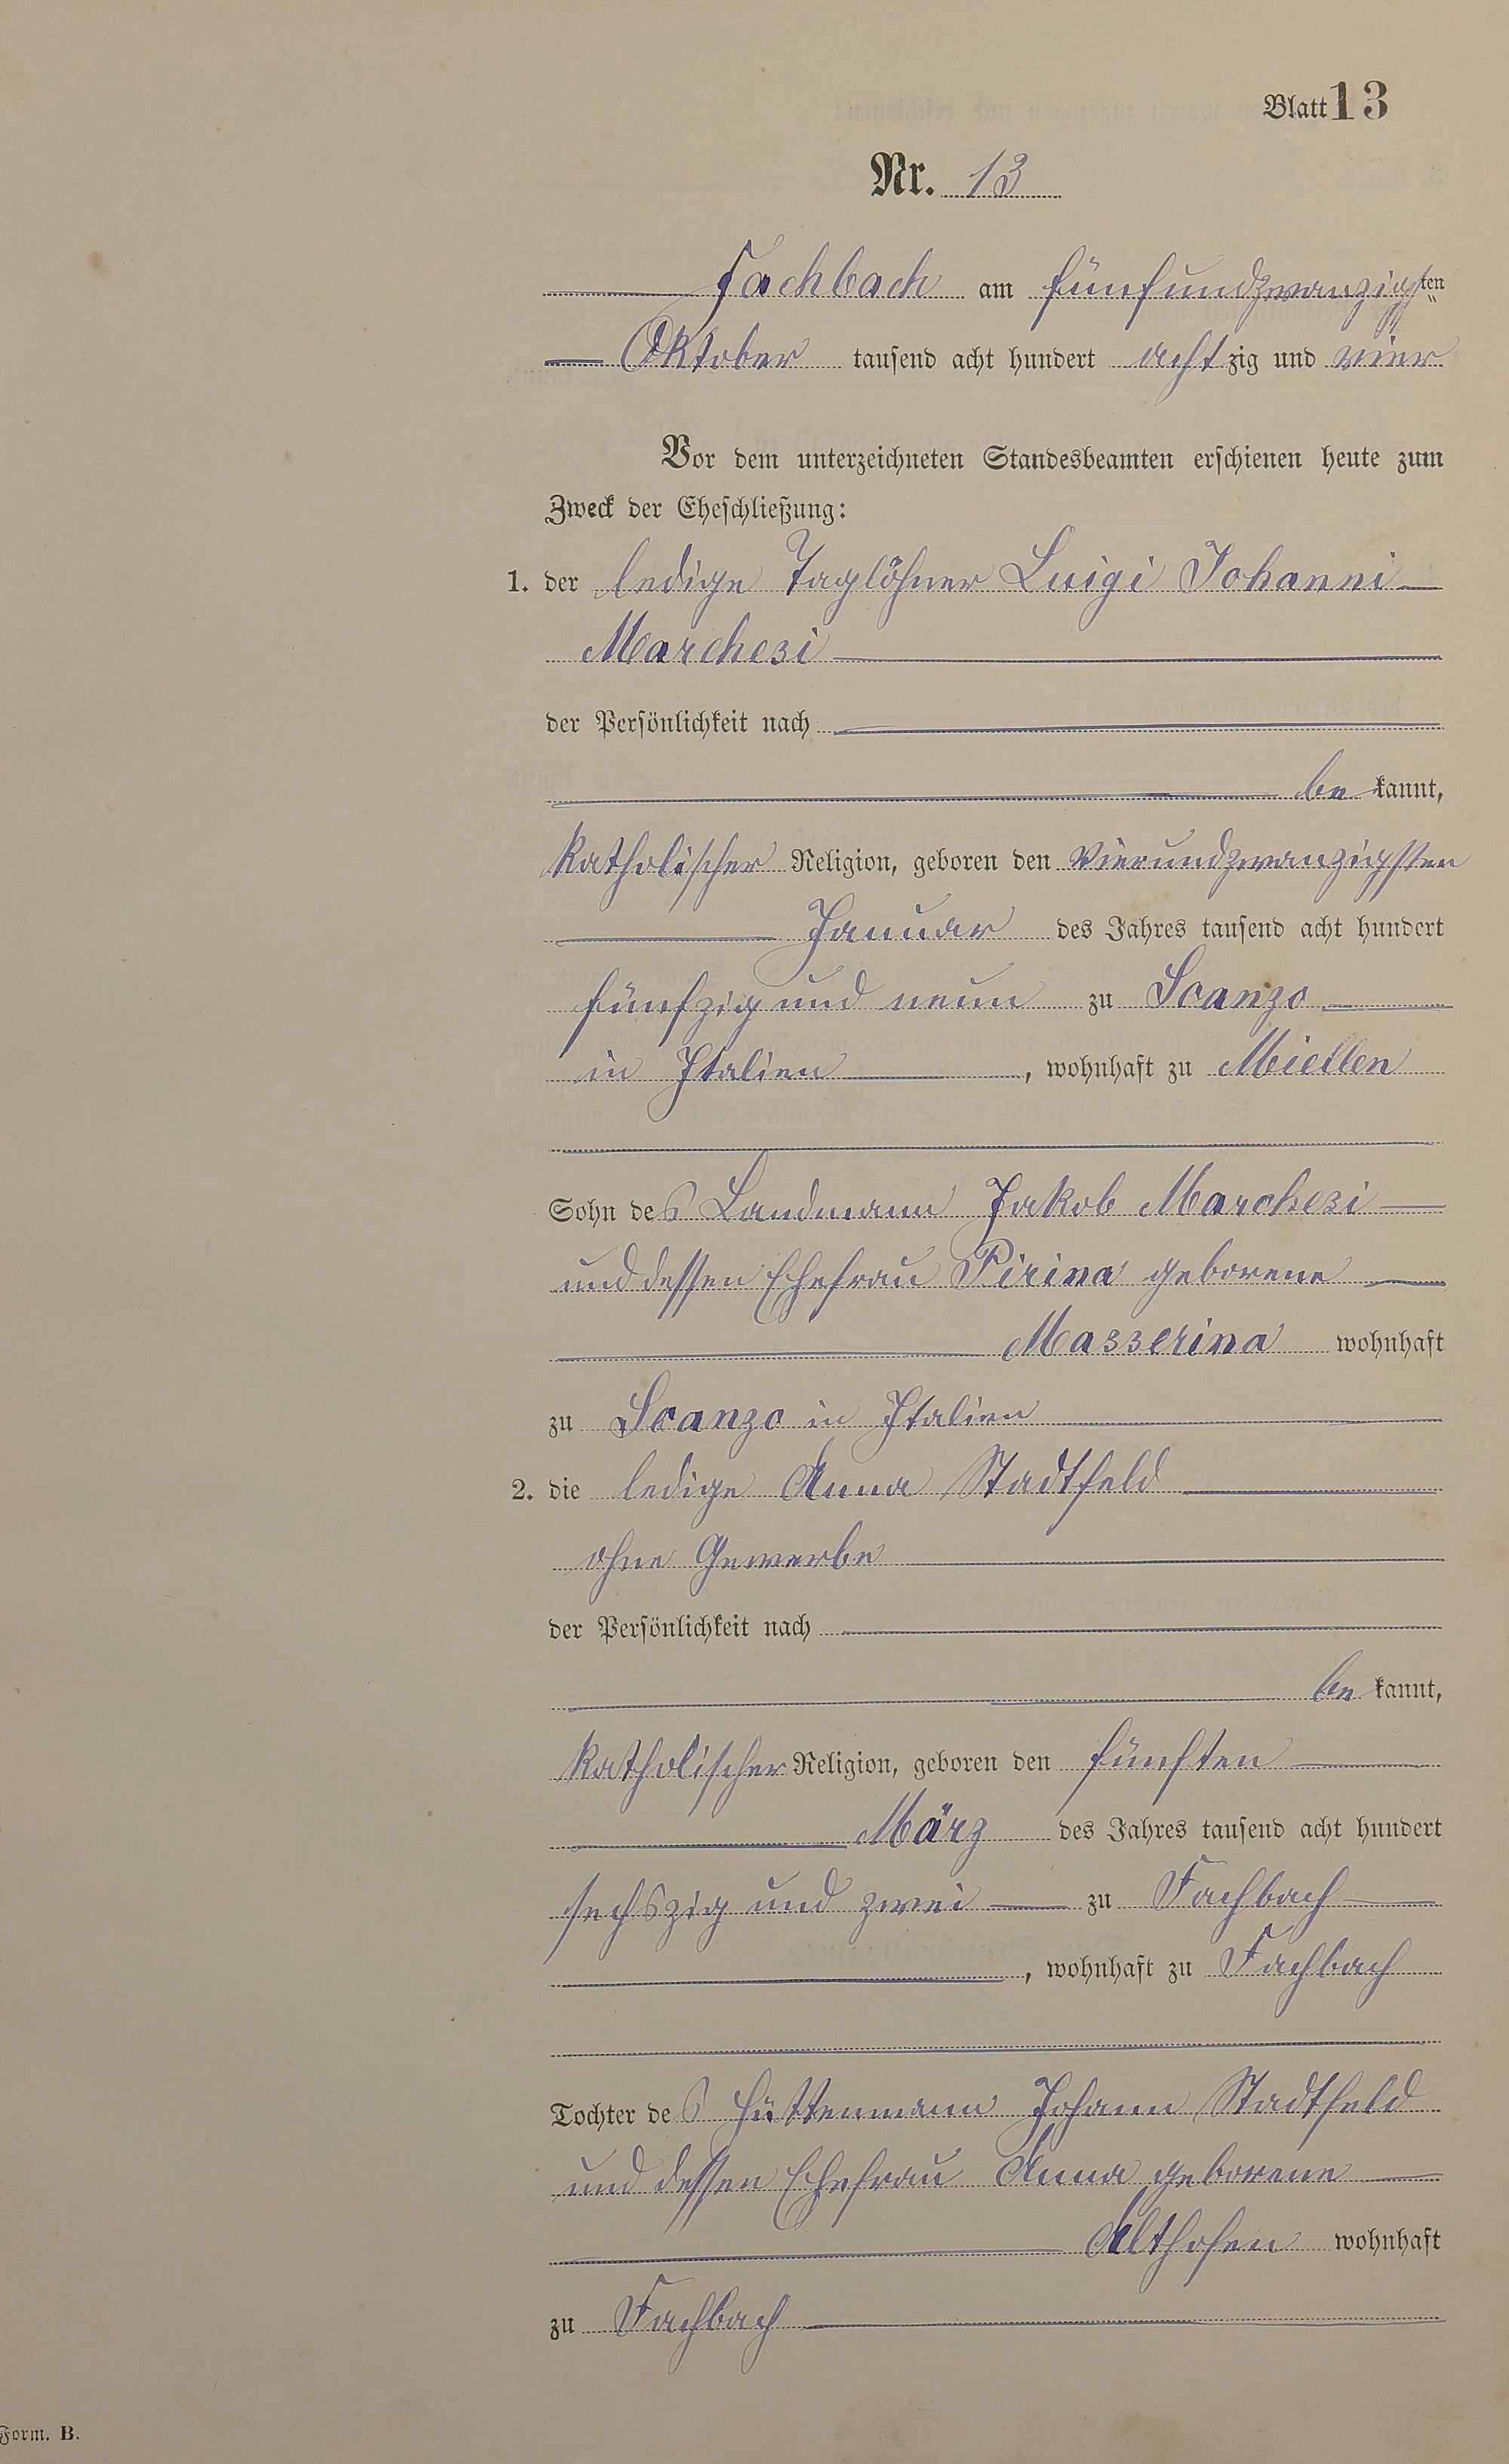 Blatt 13
Nr. 13
Fachbach am fünfundzwanzigsten
Oktober tausend acht hundert achtzig und vier
Vor dem unterzeichneten Standesbeamten erschienen heute zum
Zweck der Eheschließung:
1. der ledige Taglöhner Luigi Johanni
Marchesi
der Persönlichkeit nach
be kannt,
katholischer Religion, geboren den vierundzwanzigsten
Januar des Jahres tausend acht hundert
fünfzig und neun zu Scanzo
in Italien, wohnhaft zu Miellen
Sohn des Landmann Jakob Marchesi
und dessen Ehefrau Pirina geborene
Masserina wohnhaft
zu Scanzo in Italien
2. die ledige Anna Stadtfeld
ohne Gewerbe
der Persönlichkeit nach
be kannt,
katholischer Religion, geboren den fünften
März des Jahres tausend acht hundert
sechszig und zwei zu Fachbach
, wohnhaft zu Fachbach
Tochter des Hüttenmann Johann Stadtfeld
und dessen Ehefrau Anna geborene
Althofen wohnhaft
zu Fachbach
Form. B.